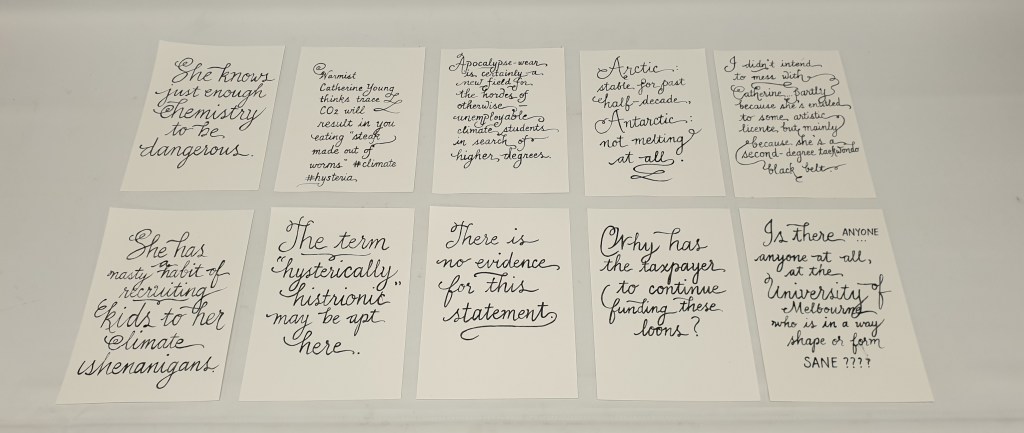 She knows
just enough
chemistry
to be
dangerous.
Warmist
Catherine Young
thinks trace
CO2 will
result in you
eating "steak
made out of
worms" #climate
#hysteria
Apocalypse-wear
is certainly a
new field in
the hordes of
otherwise
unemployable
climate students
in search of
higher degrees
Arctic:
stable for past
half-decade,
Antarctic:
not melting
at all.
I didn't intend
to mess with
Catherine, partly
because she's entitled
to some artistic
licence, but mainly
because she's a
second-degree taekwondo
black belt.
She has
a
nasty habit of
recruiting
kids to her
climate
shenanigans.
The term
"hysterically
histrionic"
may be apt
here.
There is
no evidence
for this
statement
Why has
the taxpayer
to continue
funding these
loons?
Is there ANYONE
...
anyone at all,
at the
University of
Melbourne
who is in a way
shape or form
SANE ????